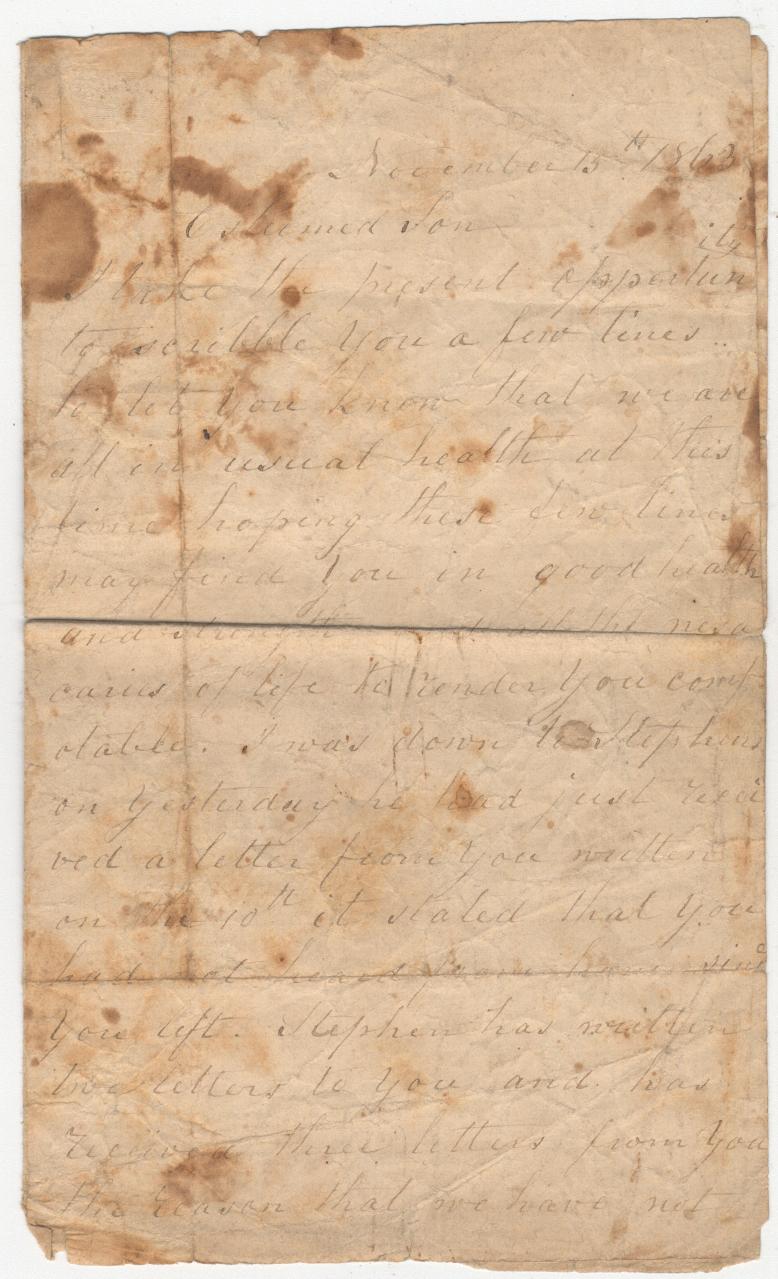 November 15th 1863
Esteemed Son
ity
I take the present opportun
to scribble you a few lines..
to let you know that we are
all in usual health at this
time hoping these few lines
may find you in good health
and strength and all the nessa
caries of life to render you comf
otable. I was down to Stephens
on yesterday he had just recei
ved a letter from you written
on the 10th it stated that you
had not heard from home since
you left. Stephen has written
two letters to you and has
received three letters from you
the reason that we have not